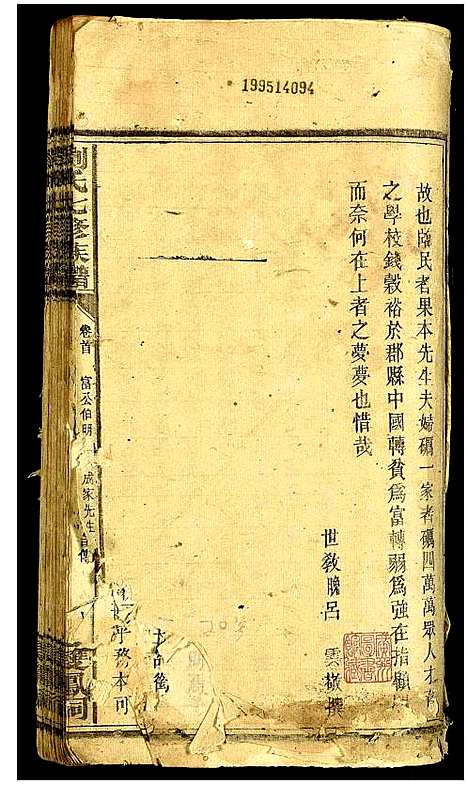 199514094
故也臨民者果本先生夫婦礪一家者礪四萬萬眾人才育
之學校錢穀裕於郡縣中國轉貧爲富轉弱爲強在指顧
而奈何在上者之夢夢也惜哉
世教晚呂雲樾撰
乎務本可
劉氏七修族譜
卷首
富公伯明
成家先生
雙鳳祠